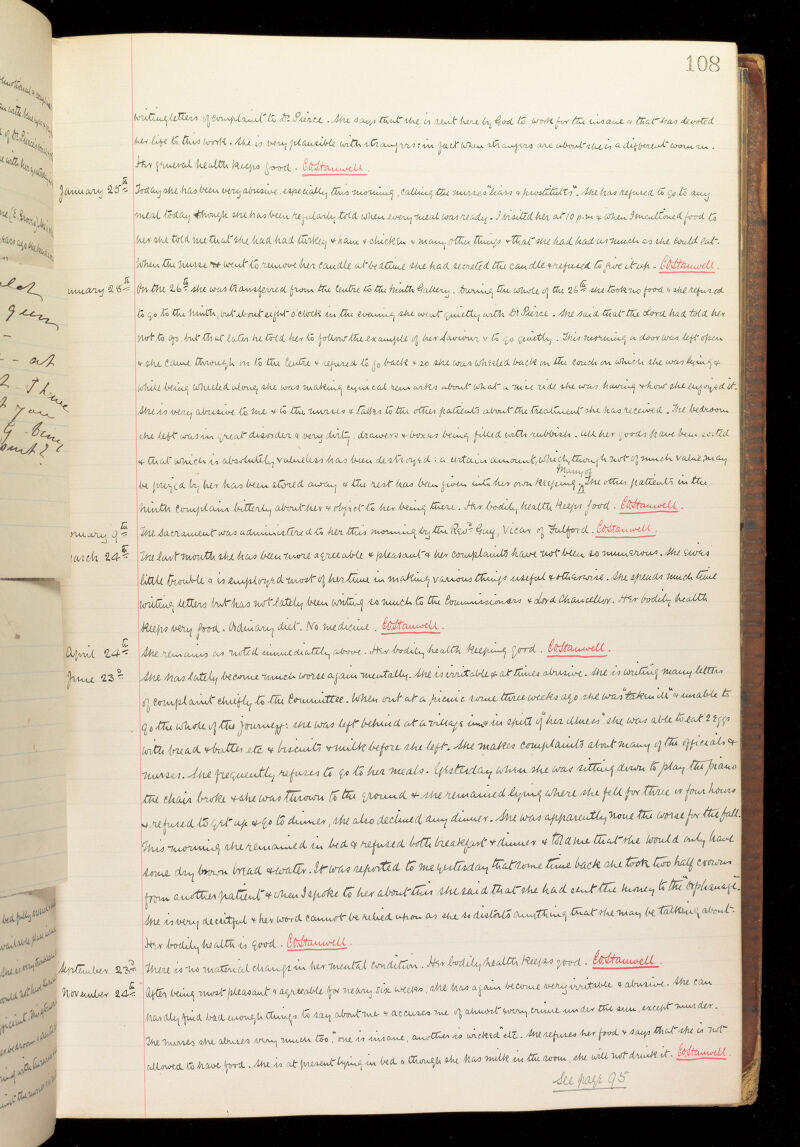 108
writing letters of complaint to Dr. Pierce. She says that she is sent here by God to work for the insane & that has devoted
her life to this work. She is very plausible with strangers: in fact when strangers are about she is a different woman.
Her general health keeps good. COStanwell.
January 25th Today she has been very abusive, especially this morning, calling the nurses "liars & prostitutes". She has refused to go to any
meal today though she has been regularly told when every meal was ready. I visited her at 10 p.m & when I mentioned food to
her she told me that she had had turkey & ham & chicken & many other things & that she had had as much as she could eat.
When the nurse went to remove her candle at bedtime she had secreted the candle & refused to give it up. COStanwell.
January 28th On the 26th she was transferred from the Centre to the Ninth Gallery. During the whole of the 26th she took no food & she refused
to go to the Ninth, but about eight o'clock in the evening she went quietly with Dr. Pierce. She said that the Lord had told her
not to go, but that later he told her to follow the example of her Saviour & to go quietly. This morning a door was left open
& she came through on to the Centre & refused to go back & so she was wheeled back on the couch on which she was lying &
while being wheeled along she was making cynical remarks about what a nice ride she was having & how she enjoyed it.
She is very abusive to me & to the nurses & talks to the other patients about the treatment she has received. The bedroom
she left was in great disorder & very dirty, drawers & boxes being filled with rubbish. All her goods have been sorted
& that which is absolutely valueless has been destroyed: a certain amount, which, though not of much value may
be prized by her has been stored away & the rest has been given into her own keeping. Many of the other patients in the
Ninth complain bitterly about her & object to her being there. Her bodily health keeps good. COStanwell.
ruary 9th The sacrament was administered to her this morning by the Revd. Guy, Vicar of Fulford. COStanwell.
March 24th The last month she has been more agreeable & pleasant & her complaints have not been so numerous. She gives
little trouble & is employed most of her time in making various things useful & otherwise. She spends much time
writing letters but has not lately been writing so much to the Commissioners & Lord Chancellor. Her bodily health
keeps very good. Ordinary diet. No medicine. COStanwell.
April 24th She remains as noted immediately above. Her bodily health keeping good. COStanwell.
June 23d She has lately become much worse again mentally. She is irritable & at times abusive. She is writing many letters
of complaint chiefly to the Committee. When out at a picnic some three weeks ago she was "taken ill" & unable to
go the whole of the journey: she was left behind at a village inn & in spite of "her illness" she was able to eat 2 eggs
with bread & butter etc & biscuits & milk before she left. She makes complaints about many of the officials &
nurses. She frequently refuses to go to her meals. Yesterday when she was sitting down to play the piano
the chair broke & she was thrown to the ground & she remained lying where she fell for three or four hours
& refused to get up & go to dinner, she also declined any dinner. She was apparently none the worse for the fall.
This morning she remained in bed & refused both breakfast & dinner & told me that she would only have
some dry brown bread & water. It was reported to me yesterday that some time back she took two half crowns
from another patient & when I spoke to her about this she said that she had sent the money to the "Orphanage".
She is very deceitful & her word cannot be relied upon as she so distorts anything that she may be talking about.
Her bodily health is good. COStanwell.
September 23d There is no material change in her mental condition. Her bodily health keeps good. COStanwell.
November 24th After being most pleasant & agreeable for nearly six weeks, she has again become very irritable & abusive. She can
hardly find bad enough things to say about me & accuses me of almost every crime under the sun, except murder.
The nurses she abuses very much too, "one is insane, another is wicked" etc. She refuses her food & says that she is not
allowed to have food. She is at present lying in bed & though she has milk in the room, she will not drink it. COStanwell.
See page 95